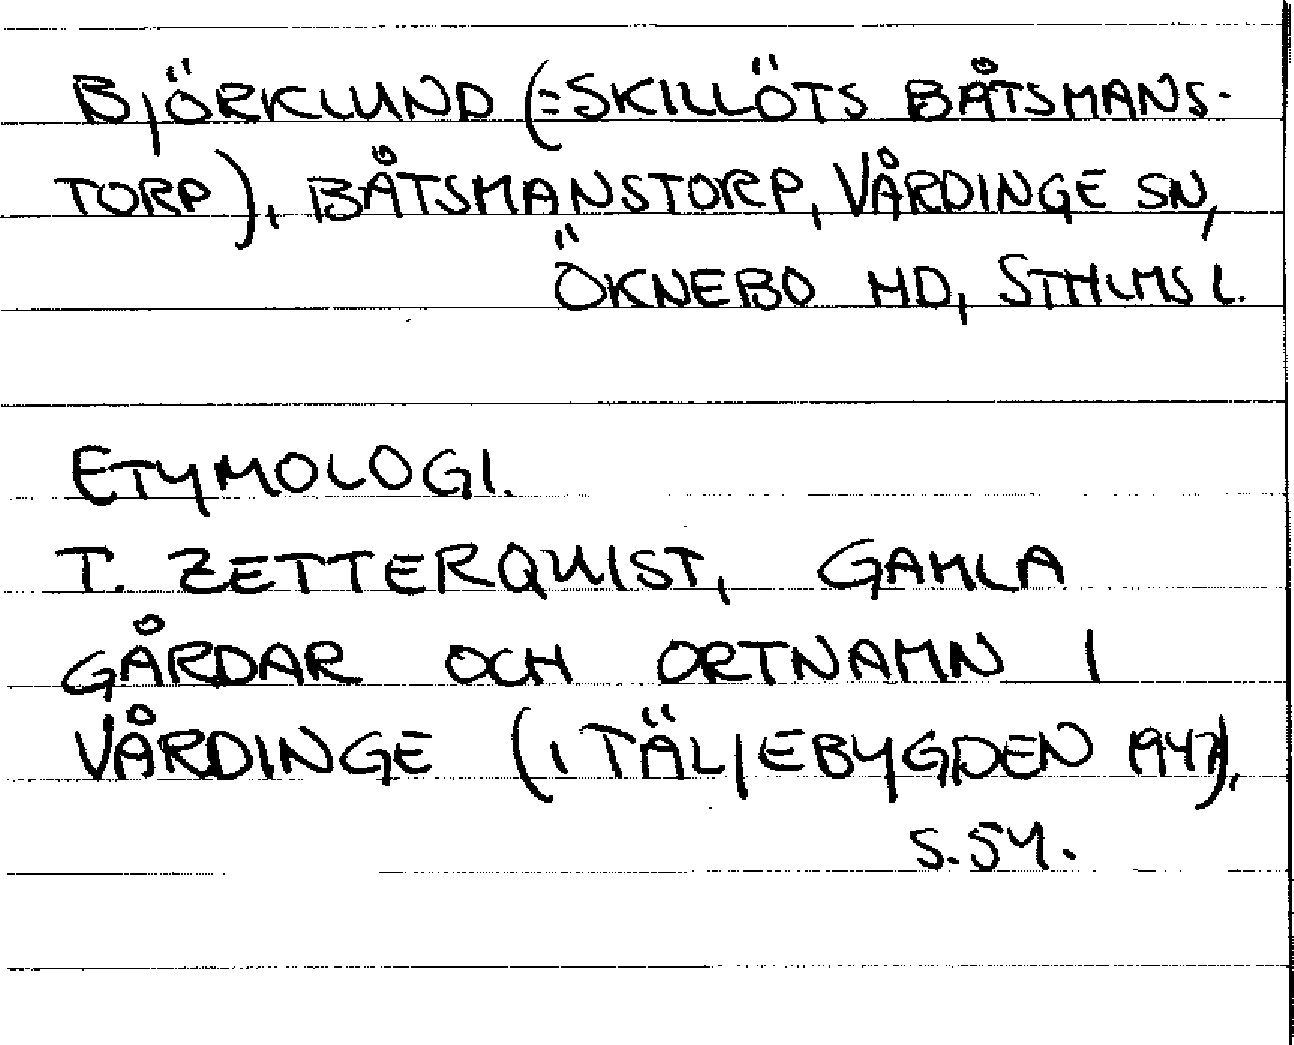 BJÖRKLUND (=SKILLÖTS BÅTSMANS-
TORP), BÅTSMANSTORP, VÅRDINGE SN,
ÖKNEBO HD, STHLMS L.
ETYMOLOGI.
T. ZETTERQUIST, GAMLA
GÅRDAR OCH ORTNAMN I
VÅRDINGE (I TÄLJEBYGDEN 1947),
S.54.